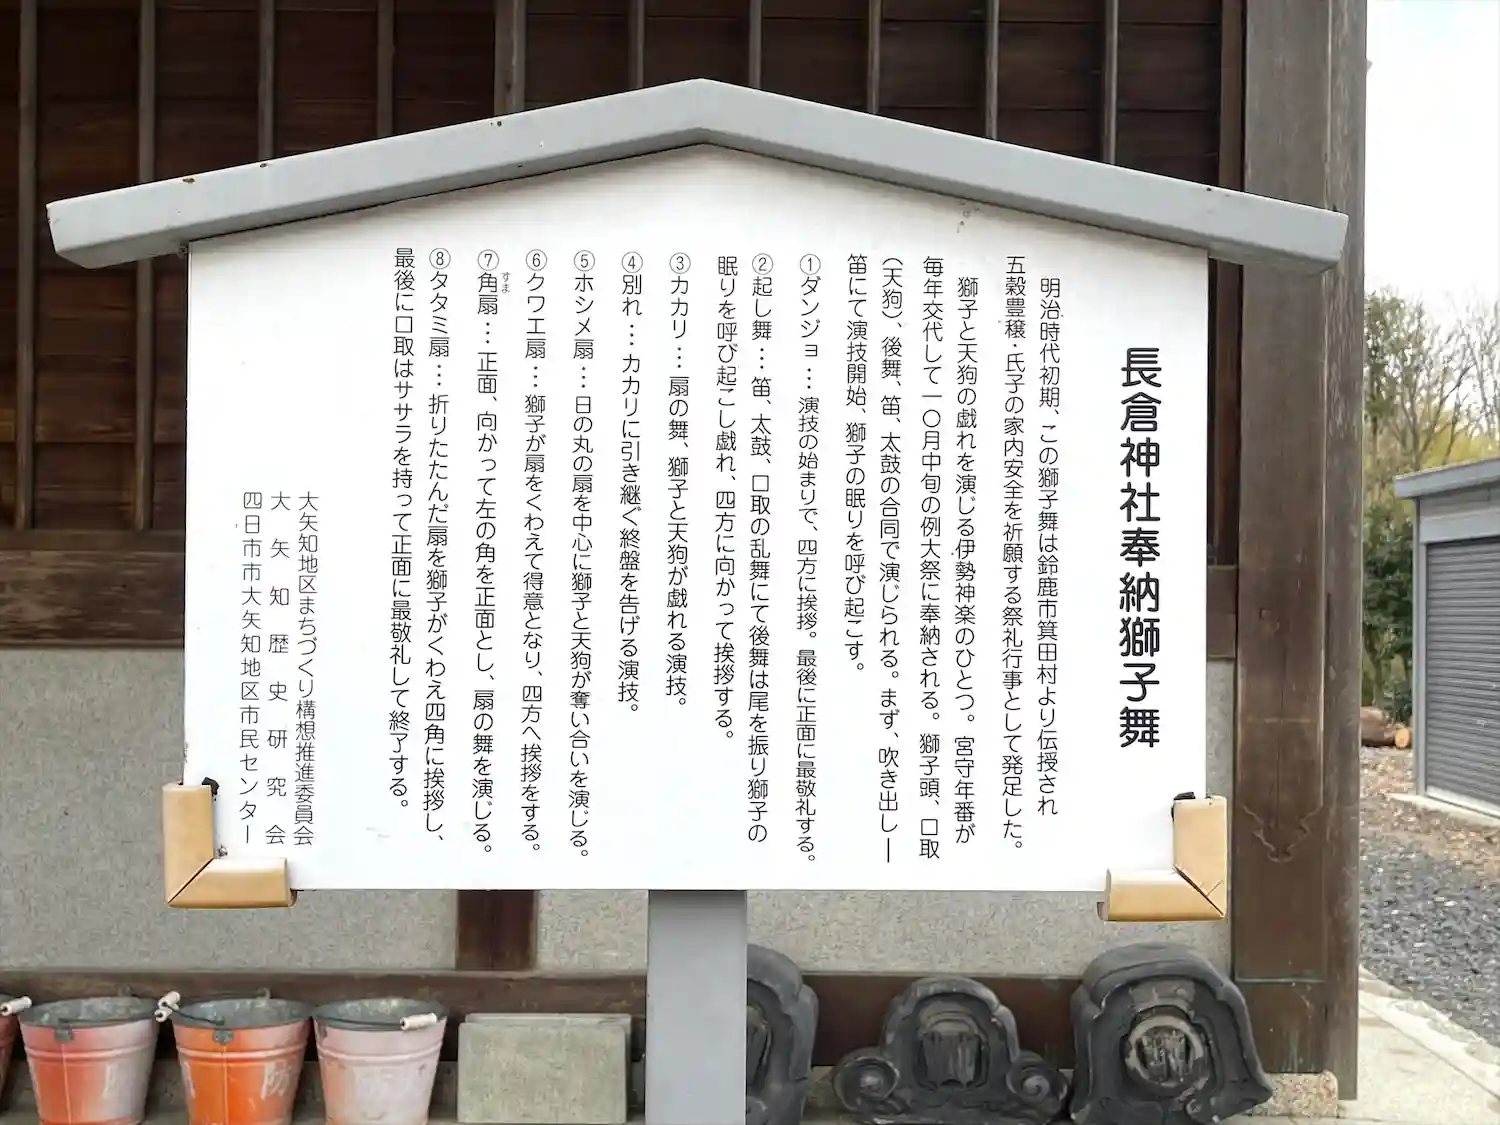 長倉神社奉納獅子舞
明治時代初期、この獅子舞は鈴鹿市箕田村より伝授され
五穀豊穣・氏子の家内安全を祈願する祭礼行事として発足した。
獅子と天狗の戯れを演じる伊勢神楽のひとつ。宮守年番が
毎年交代して一〇月中旬の例大祭に奉納される。獅子頭、口取
(天狗)、後舞、笛、太鼓の合同で演じられる。まず、吹き出し―
笛にて演技開始、獅子の眠りを呼び起こす。
①ダンジョ…演技の始まりで、四方に挨拶。最後に正面に最敬礼する。
②起し舞…笛、太鼓、口取の乱舞にて後舞は尾を振り獅子の
眠りを呼び起こし戯れ、四方に向かって挨拶する。
③カカリ…扇の舞、獅子と天狗が戯れる演技。
④別れ…カカリに引き継ぐ終盤を告げる演技。
⑤ホシメ扇…日の丸の扇を中心に獅子と天狗が奪い合いを演じる。
⑥クワエ扇…獅子が扇をくわえて得意となり、四方へ挨拶をする。
⑦角扇…正面、向かって左の角を正面とし、扇の舞を演じる。
すま
⑧タタミ扇…折りたたんだ扇を獅子がくわえ四角に挨拶し、
最後に口取はササラを持って正面に最敬礼して終了する。
大矢知地区まちづくり構想推進委員会
大矢知歴史研究会
四日市市大矢知地区市民センター
防